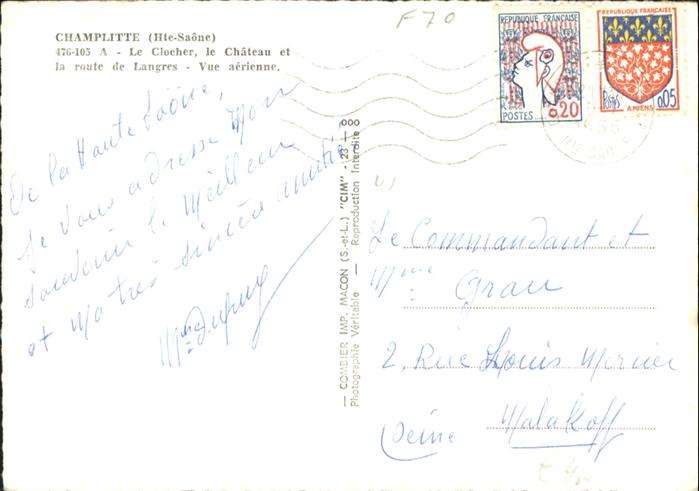 F70
CHAMPLITTE (Hte-Saône)
476-105 A - Le Clocher, le Château et
la route de Langres - Vue aérienne.
REPUBLIQUE FRANÇAISE
POSTES 0.20
REPUBLIQUE FRANÇAISE
Postes 0,05
AMIENS
De la Haute Saône,
Je vous adresse Mon
souvenir le Meilleur
et Ma très sincère amitié
Mme Dupuy
— COMBIER IMP. MACON (S.-et-L.) "CIM" - 123 — 000
Photographie Véritable — Reproduction Interdite
Le Commandant et
Mme Grau
2, Rue Louis Mercier
Malakoff
Seine